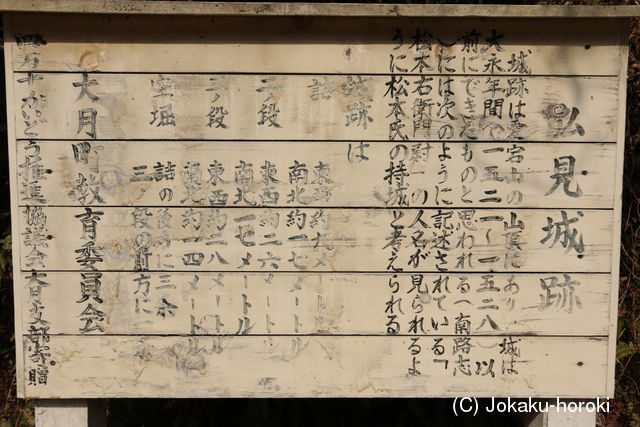 弘見城跡
城跡は愛宕山の山頂にあり、城は
大永年間(一五二一〜一五二八)以
前にできたものと思われる(南路志
)には次のように記述されている「
松本右衛門尉」の人名が見られるよ
うに松本氏の持城と考えられる
城跡は
詰 東西約九メートル
南北約一七メートル
二ノ段 東西約二六メートル
南北一七メートル
三ノ段 東西約二八メートル
南北約一四メートル
空堀 詰の後方に三条
三ノ段の前方に
大月町教育委員会
四万十かいどう推進協議会 大月支部寄贈
(C) Jokaku-horoki